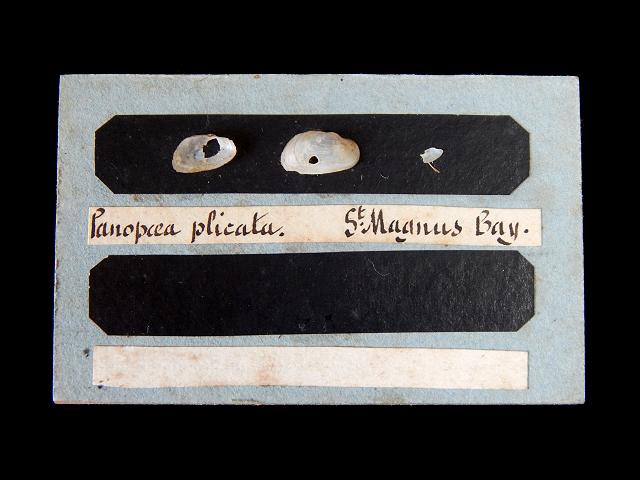 Panopœa plicata. St. Magnus Bay.